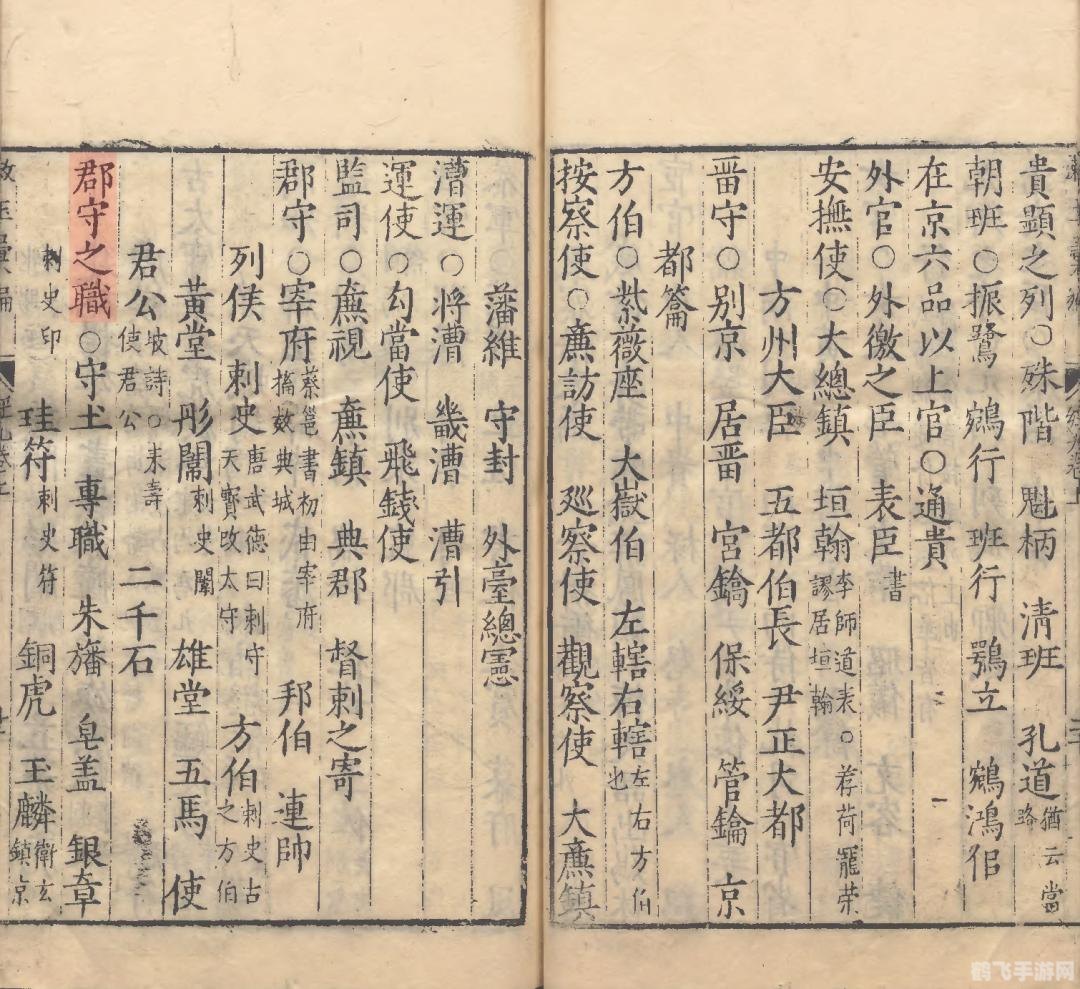 貴顯之列○殊階 魁柄 清班 孔道猶云當路
朝班○振鷺 鵷行 班行 鶚立 鵷鴻侣
在京六品以上官○通貴
外官○外徼之臣 表臣書
安撫使○大總鎮 垣翰李師道表○荐荷寵荣謬居垣翰
方州大臣 五都伯長 尹正大都
畱守○别京 居畱 宮鑰 保綏 管鑰 京
都籥
方伯○紫薇座 大嶽伯 左轄右轄左右方伯也
按察使○亷訪使 廵察使 觀察使 大亷鎮
藩維 守封 外臺總憲
漕運○將漕 畿漕 漕引
運使○勾當使 飛錢使
監司○亷視 亷鎮 典郡 督刺之寄
郡守○宰府蔡邕書初由宰府 邦伯 連帥
列侯 刺史唐武德曰刺守天寳改太守 方伯刺史古之方伯
黃堂 彤闈刺史闈 雄堂 五馬 使
君公坡詩○来壽使君公 二千石
郡守之職○守土 專職 朱旛 皂盖 銀章
刺史印 珪符刺史符 銅虎 玉麟衛玄鎮京
鹤飞手游网